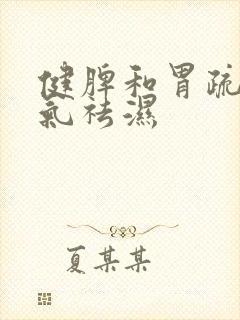 健脾和胃疏
氣祛濕
夏某某